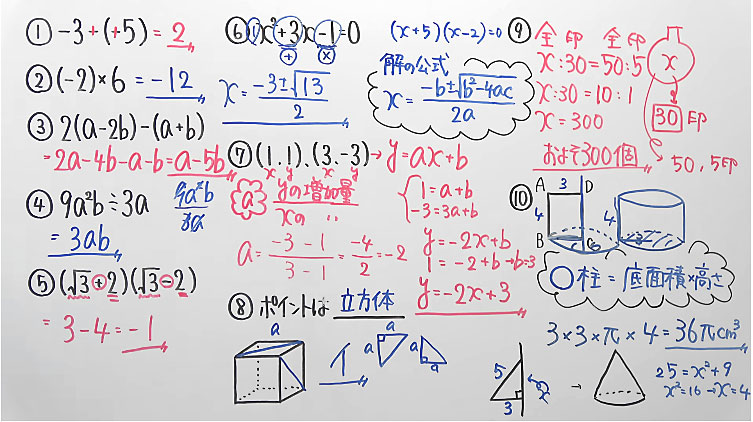 ① -3+(+5)=2
② (-2)×6=-12
③ 2(a-2b)-(a+b)
=2a-4b-a-b=a-5b
④ 9a²b÷3a 9a²b/3a
=3ab
⑤ (√3+2)(√3-2)
=3-4=-1
⑥ 1x²+3x-1=0 (x+5)(x-2)=0
⊕ ⊗
x=(-3±√13)/2
解の公式
x=(-b±√b²-4ac)/2a
⑦ (1,1)、(3,-3)→y=ax+b
x y x y
a yの増加量
xの 〃
1=a+b
-3=3a+b
a=(-3-1)/(3-1)=-4/2=-2
y=-2x+b
1=-2+b→b=3
y=-2x+3
⑧ ポイントは 立方体
a
イ
a a
a a
⑨ 全 印 全 印
x:30=50:5
x:30=10:1
x=300
およそ300個
x
30 印
50、5印
⑩ A 3 D
4
B C
4
3
○柱=底面積×高さ
3×3×π×4=36πcm³
5 x
3
→
25=x²+9
x²=16→x=4